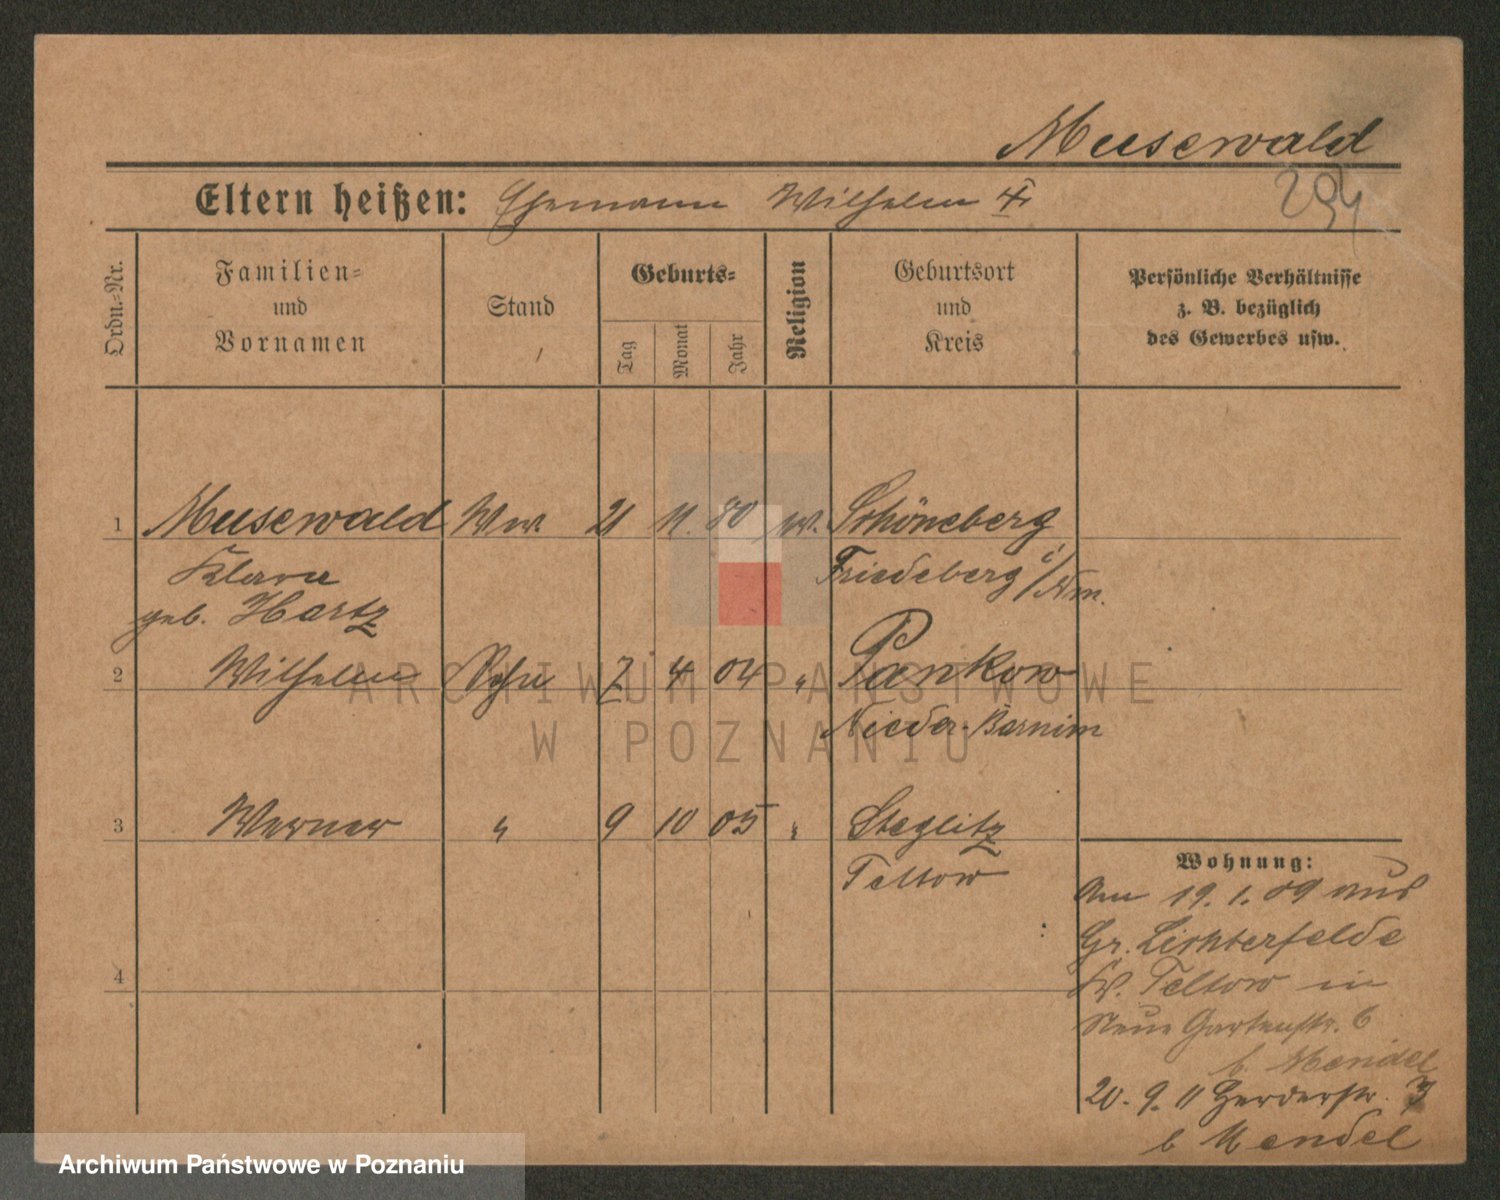 Musewald
294
Eltern heißen: Ehemann Wilhelm
Ordn.-Nr.
Familien-
und
Vornamen
Stand
Geburts-
Tag
Monat
Jahr
Religion
Geburtsort
und
Kreis
Persönliche Verhältnisse
z. B. bezüglich
des Gewerbes usw.
1 Musewald Ww. 21 11. 80 Schöneberg
Klara Friedeberg i/Nm.
geb. Hartz
2 Wilhelm Sohn 7 4 04 " Pankow
Nieder-Barnim
3 Werner " 9 10 05 " Steglitz
Teltow
4
Wohnung:
Am 19. 1. 09 aus
Gr. Lichterfelde
Kr. Teltow in
Neue Gartenstr. 6
b. Mendel
20. 9. 11 Herderstr.
b Mendel
ARCHIWUM PAŃSTWOWE
W POZNANIU
Archiwum Państwowe w Poznaniu